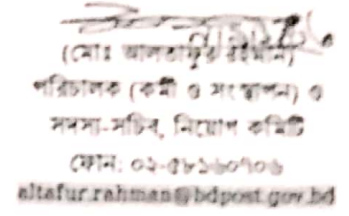 (মোঃ আলতাফুর রহমান)
পরিচালক (কর্মী ও সংস্থাপন) ও
সদস্য-সচিব, নিয়োগ কমিটি
ফোন: ০২-৫৮১৬০৭০৬
altafur.rahman@bdpost.gov.bd